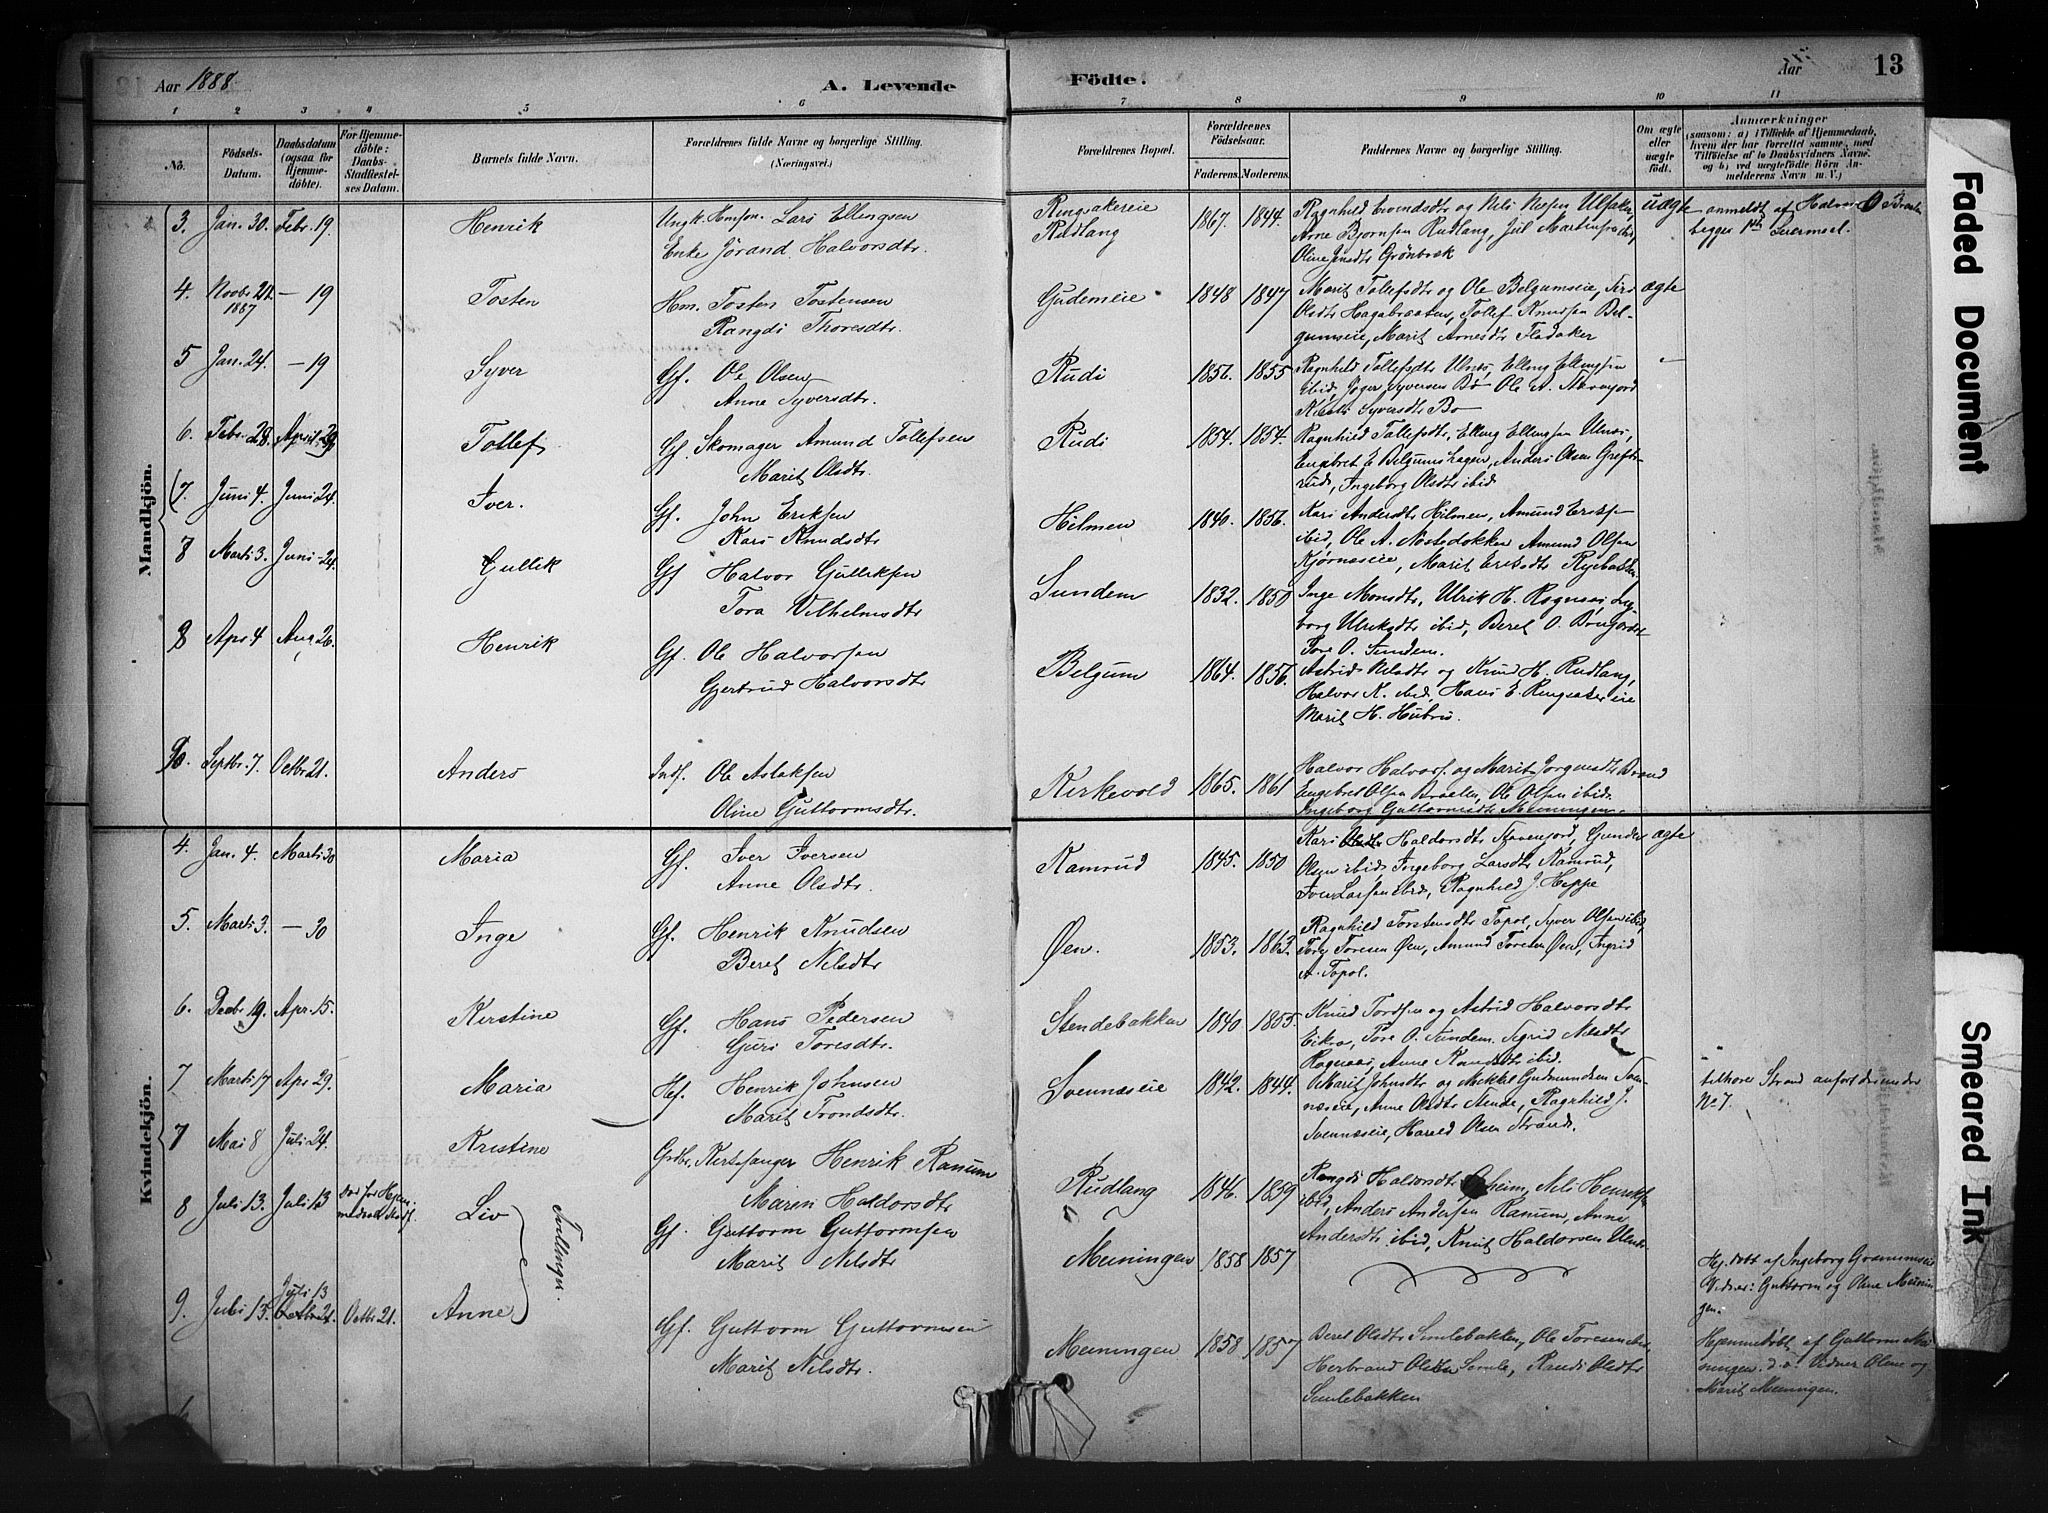 Aar 1888.
A. Levende
Födte.
Aar
13
1 2 3 4 5 6 7 8 9 10 11
No.
Födsels-
Datum.
Daabsdatum
(ogsaa for
Hjemme-
döbte).
For Hjemme-
döbte:
Daabs-
Stadfæstel-
ses Datum.
Barnets fulde Navn.
Forældrenes fulde Navne og borgerlige Stilling.
(Næringsvei.)
Forældrenes Bopæl.
Forældrenes
Födselsaar.
Faderens. Moderens.
Faddernes Navne og borgerlige Stilling.
Om ægte
eller
uægte
födt.
Anmærkninger
(saasom: a) i Tilfælde af Hjemmedaab,
hvem der har forrettet samme, med
Tilföielse af to Daabsvidners Navne,
og b) ved uægtefödte Börn An-
melderens Navn m. V.)
Mandkjön.
3. Jan. 30. Febr. 19. Henrik
Ungk. Lars Ellingsen
Enke Jörand Halvorsdtr.
Ringsakereie
Rudlang
1867. 1844.
Arne Bjørnsen Rudlang,
Oline Grönbræk
uægte
anmeldt af Halvor
4. Novbr 21. 1887 — 19 Tosten
Hm. Tosten Tostensen
Rangdi Thoresdtr.
Gudemeie
1848 1847
Marit Tollefsdtr og Ole Belgumseie,
Olsdtr Hagabraaten, Tollef Knudsen Bel-
gumseie, Marit Arnesdtr Fladaker
ægte
5 Jan. 24. — 19 Syver
Gf. Ole Olsen
Anne Syversdtr.
Rudi
1856. 1855
Ragnhild Tollefsdtr Ulnæs, Elling Ellingsen
ibid, Syversen Bø Ole A.
Syversdtr Bø
—
6. Febr. 28. April 29 Tollef
Gf. Skomager Amund Tollefsen
Marit Olsdtr.
Rudi
1854. 1854.
Ragnhild Tollefsdtr, Elling Ellingsen Ulnæs,
Engebret E. Belgumshagen, Anders Olsen Grefs-
rud, Ingeborg Olsdtr ibid
7. Juni 4. Juni 24. Iver.
Gf. John Eriksen
Kari Knudsdtr
Hilmen
1840. 1856.
Kari Andersdtr Hilmen, Amund Eriksen
ibid, Ole A. Nøstedokken Amund Olsen
Kjørnæseie, Marit Eriksdtr
8 Marts 3. Juni 24. Gullik
Gf. Halvor Gulliksen
Tora Vilhelmsdtr
Sundem
1832. 1850
Inge Monsdtr, Ulrik H. Rognaas, Inge-
borg Ulriksdtr ibid, Beret O.
Tore O. Sundem.
8 Apr. 4 Aug 26. Henrik
Gf. Ole Halvorsen
Gjertrud Halvorsdtr
Belgum
1864. 1856.
Astrid Nilsdtr og Knud H. Rudlang,
Halvor K. ibid, Hans E. Ringsakereie
Marit H. Hubro.
Septbr. 7. Octbr 21. Anders
Inds. Ole Aslaksen
Oline Guttormsdtr.
Kirkevold
1865. 1861
Halvor Halvors. og Marit Jørgensdtr
Engebret Olsen Ole Olsen ibid.
Ingeborg Guttormsdtr Meiningen.
Kvindekjön.
4. Jan. 4. Marts 30 Maria
Gf. Iver Iversen
Anne Olsdtr.
Kamrud
1845. 1850
Kari Haldorsdtr
Olsen ibid, Ingeborg Larsdtr Kamrud,
Iver Larsen ibid, Ragnhild J. Heppe
ægte
5. Marts 3. — 30 Inge
Gf. Henrik Knudsen
Beret Nilsdtr
Øen.
1853. 1863.
Ragnhild Torstensdtr Topol, Syver Olsen ibid,
Tore Toresen Øen, Amund Toresen Øen, Ingrid
A. Topol.
6. Decbr 19. Apr. 15. Kirstine
Gf. Hans Pedersen
Guri Toresdtr.
Stendebakken
1840 1855.
Knud Tordsen og Astrid Halvorsdtr
Eikro, Tore O. Sundem Sigrid Nilsdtr
Rognaas, Anne Knudsdtr ibid.
7 Marts 17 Apr 29. Maria
Hf. Henrik Johnsen
Marit Trondsdtr.
Svennæseie
1842. 1844.
Marit Johnsdtr og Mikkel Gudmundsen Sven-
næseie, Anne Olsdtr Ragnhild J.
Svennæseie, Harald Olsen Strand.
tilhører Strand anført der under
No 7.
7 Mai 8 Juli 24. Kristine
Grdbr. Kirkesanger Henrik Ranum
Maren Haldorsdtr
Rudlang
1846. 1859
Rangdi Halvorsdtr Nils Henriks.
ibid, Anders Andersen Ranum, Anne
Andersdtr ibid, Knut Haldorsen Ulnæs
8 Juli 13. Juli 13 Liv
Tvillinger.
Gf. Guttorm Guttormsen
Marit Nilsdtr
Meiningen
1858 1857
Hj.døbt af Ingeborg
Vidner: Guttorm og Oline Meinin-
gen.
9. Juli 13. Juli 13
Octbr 21. Octbr 21. Anne
Gf. Guttorm Guttormsen
Marit Nilsdtr.
Meiningen
1858 1857
Beret Olsdtr Semlebakken, Ole Toresen ibid,
Herbrand Olsen Semle, Randi Olsdtr
Semlebakken
Hjemmedøbt af Guttorm Mei-
ningen. Vidner Oline og
Marit Meiningen.
Faded Document
Smeared Ink